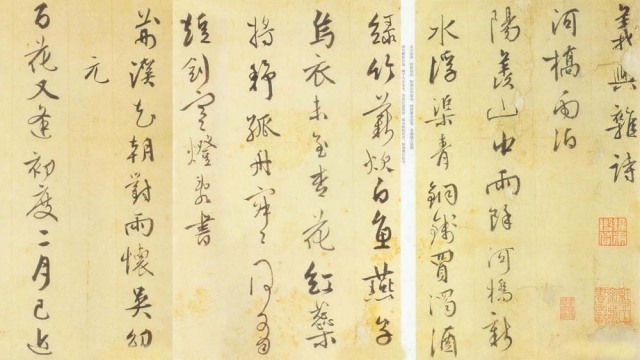 義興雜詩
河橋雨泊
陽羨山中雨除河橋新
水浮渠青銅錢買濁酒
綠竹薪炊白魚燕子
烏衣未至杏花紅蘂
將舒孤舟寂
短劍寒燈素書
荊溪花朝對雨懷吳幼
元
百花又逢初度二月已近